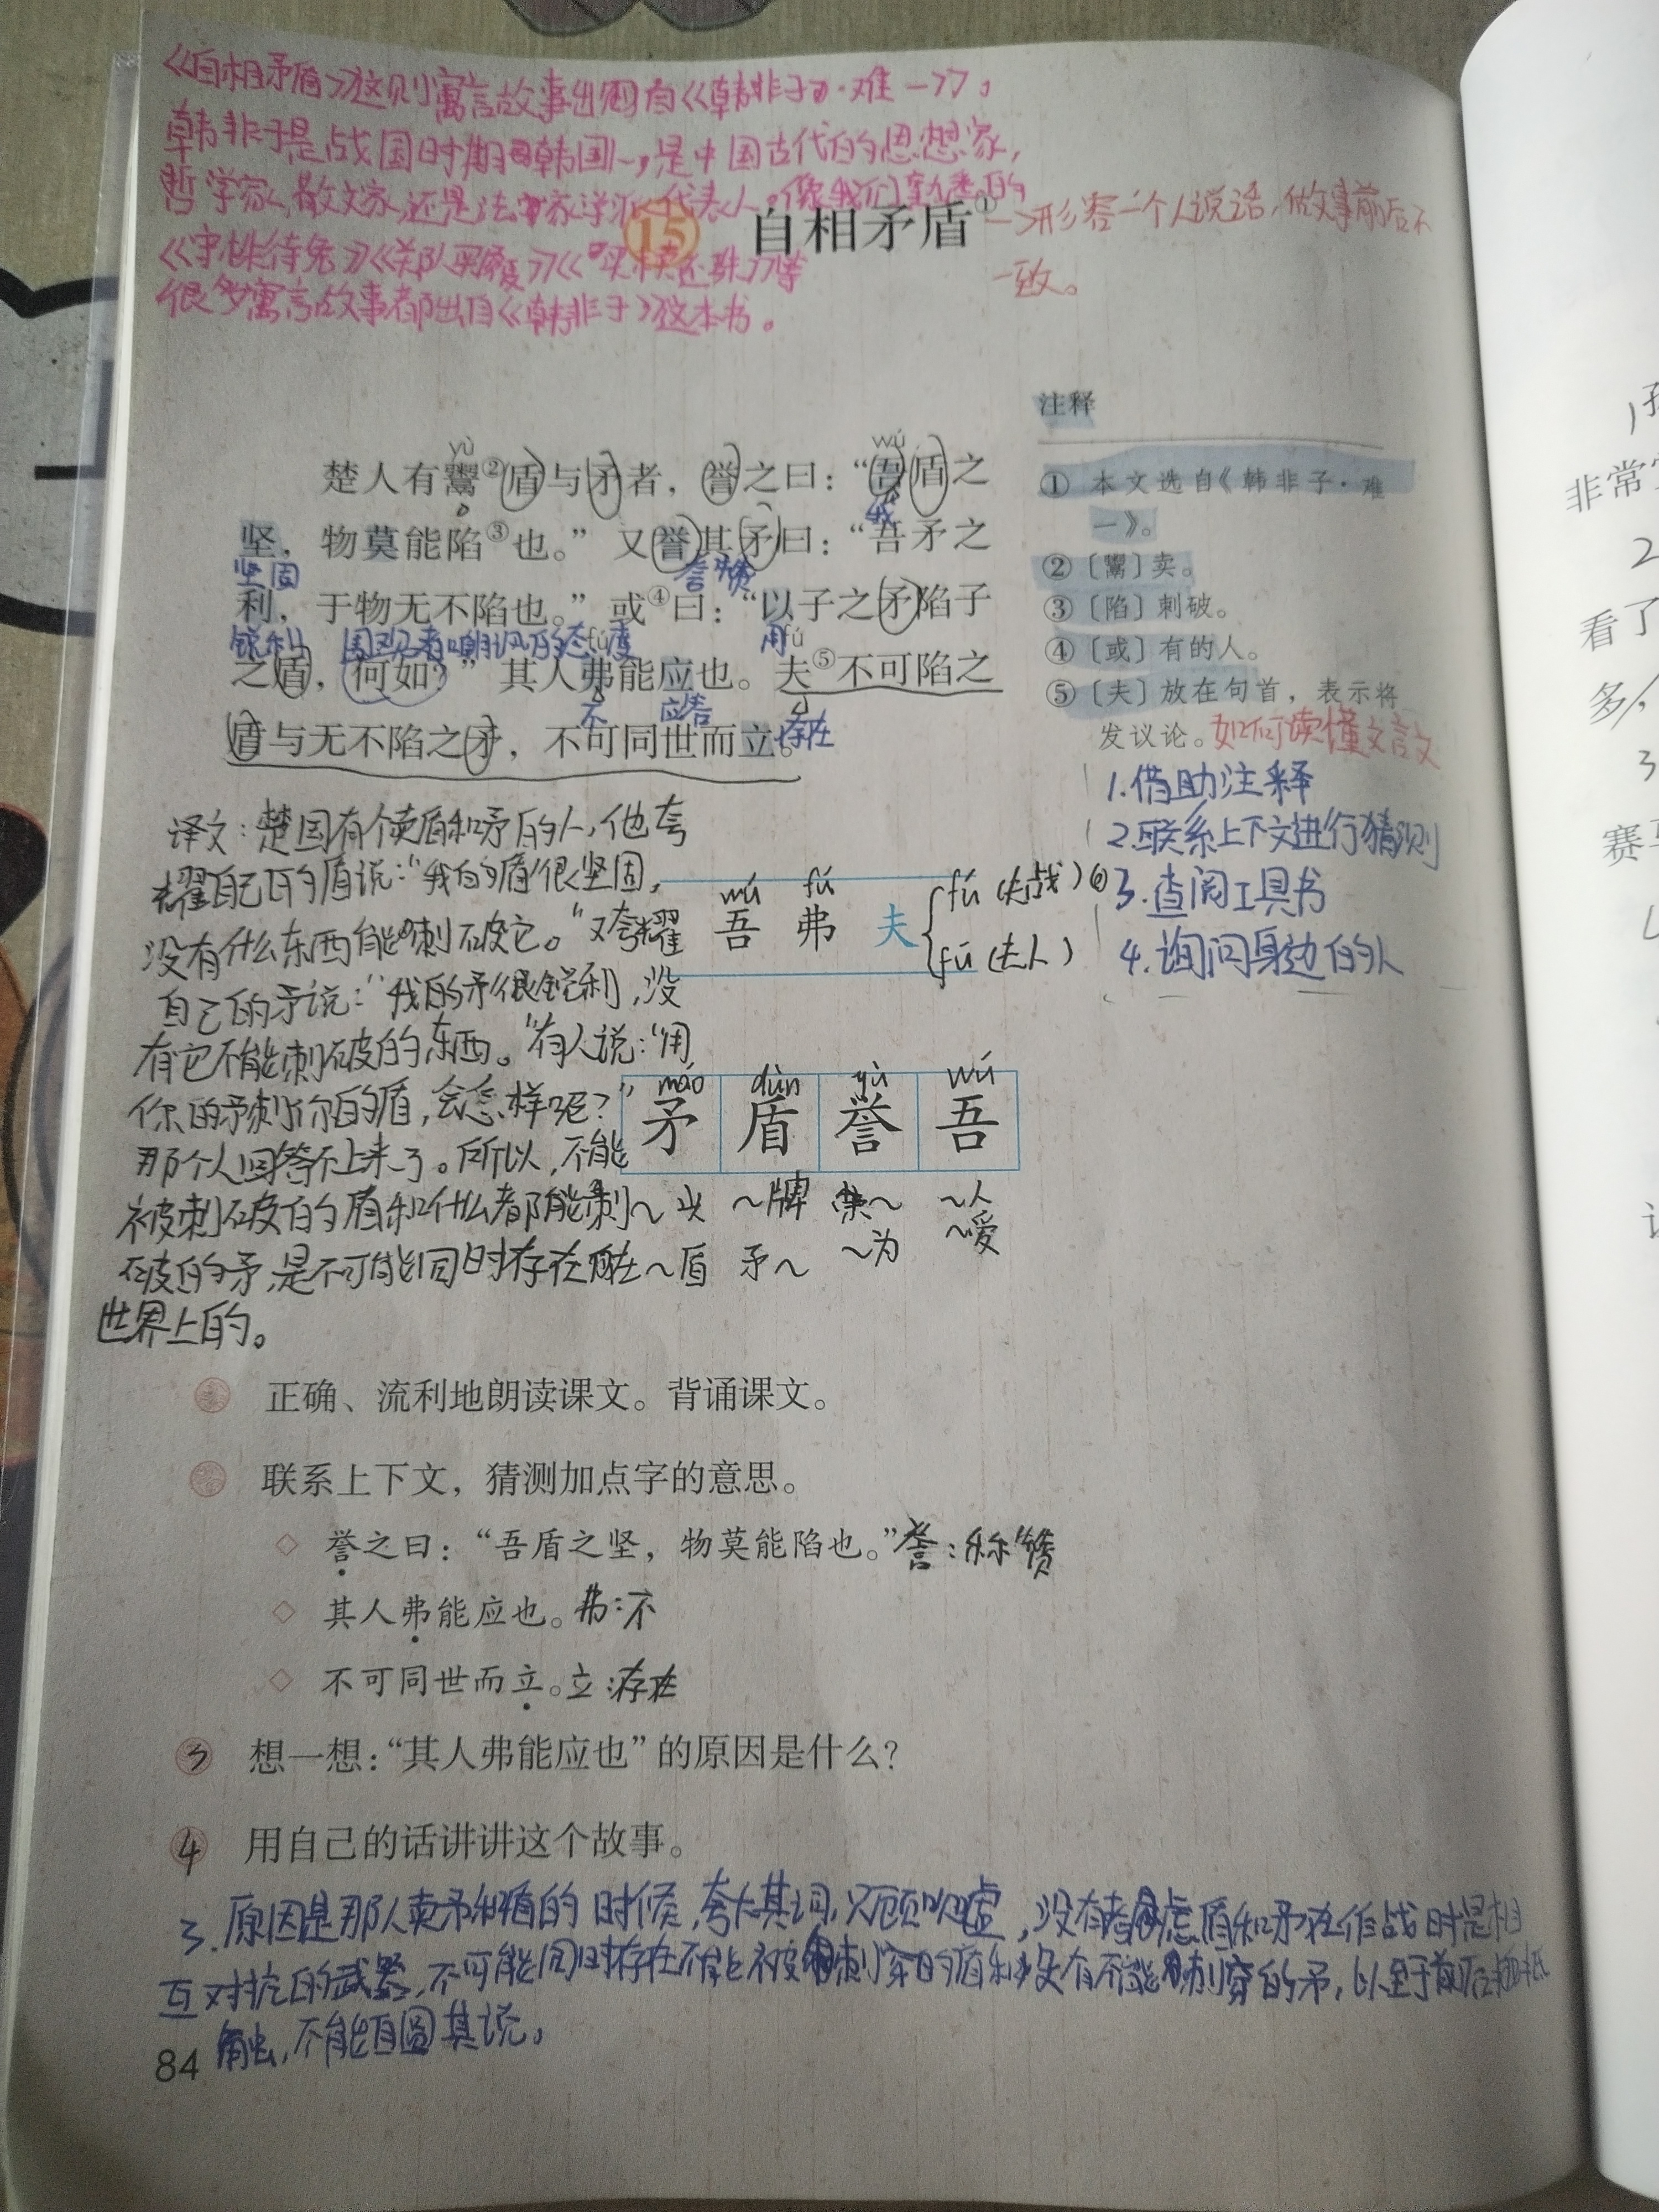 《自相矛盾》这则寓言故事出自《韩非子·难一》。
韩非子是战国时期韩国人，是中国古代的思想家，
哲学家，散文家，还是法家学派代表人。像我们熟悉的
《守株待兔》《郑人买履》《买椟还珠》等
很多寓言故事都出自《韩非子》这本书。
15 自相矛盾①
—>形容一个人说话，做事前后不
一致。
yù wú
楚人有鬻②盾与矛者，誉之曰：“吾盾之
我
坚，物莫能陷③也。”又誉其矛曰：“吾矛之
坚固 夸赞
利，于物无不陷也。”或④曰：“以子之矛陷子
锐利 围观者嘲讽的态度 用
fú fú
之盾，何如？”其人弗能应也。夫⑤不可陷之
不 应答
盾与无不陷之矛，不可同世而立。
存在
注释
① 本文选自《韩非子·难
一》。
②〔鬻〕卖。
③〔陷〕刺破。
④〔或〕有的人。
⑤〔夫〕放在句首，表示将
发议论。
如何读懂文言文
1.借助注释
2.联系上下文进行猜测
3.查阅工具书
4.询问身边的人
译文：楚国有个卖盾和矛的人，他夸
耀自己的盾说：“我的盾很坚固，
没有什么东西能刺破它。”又夸耀
自己的矛说：“我的矛很锐利，没
有它不能刺破的东西。”有人说：“用
你的矛刺你的盾，会怎样呢？”
那个人回答不上来了。所以，不能
被刺破的盾和什么都能刺
破的矛，是不可能同时存在在
世界上的。
wú fú
吾 弗 夫
fú
fū（夫人）
máo dùn yù wú
矛 盾 誉 吾
～头 ～牌 荣～ ～人
～盾 矛～ ～为 ～嗳
正确、流利地朗读课文。背诵课文。
联系上下文，猜测加点字的意思。
◇ 誉之曰：“吾盾之坚，物莫能陷也。”誉：称赞
◇ 其人弗能应也。弗：不
◇ 不可同世而立。立：存在
3 想一想：“其人弗能应也”的原因是什么？
4 用自己的话讲讲这个故事。
3. 原因是那人卖矛和盾的时候，夸大其词，只顾吹嘘，没有考虑盾和矛在作战时是相
互对抗的武器，不可能同时存在不能被刺穿的盾和没有不能刺穿的矛，以至于前后抵
触，不能自圆其说。
84
非常
2
看了
多，
3
赛